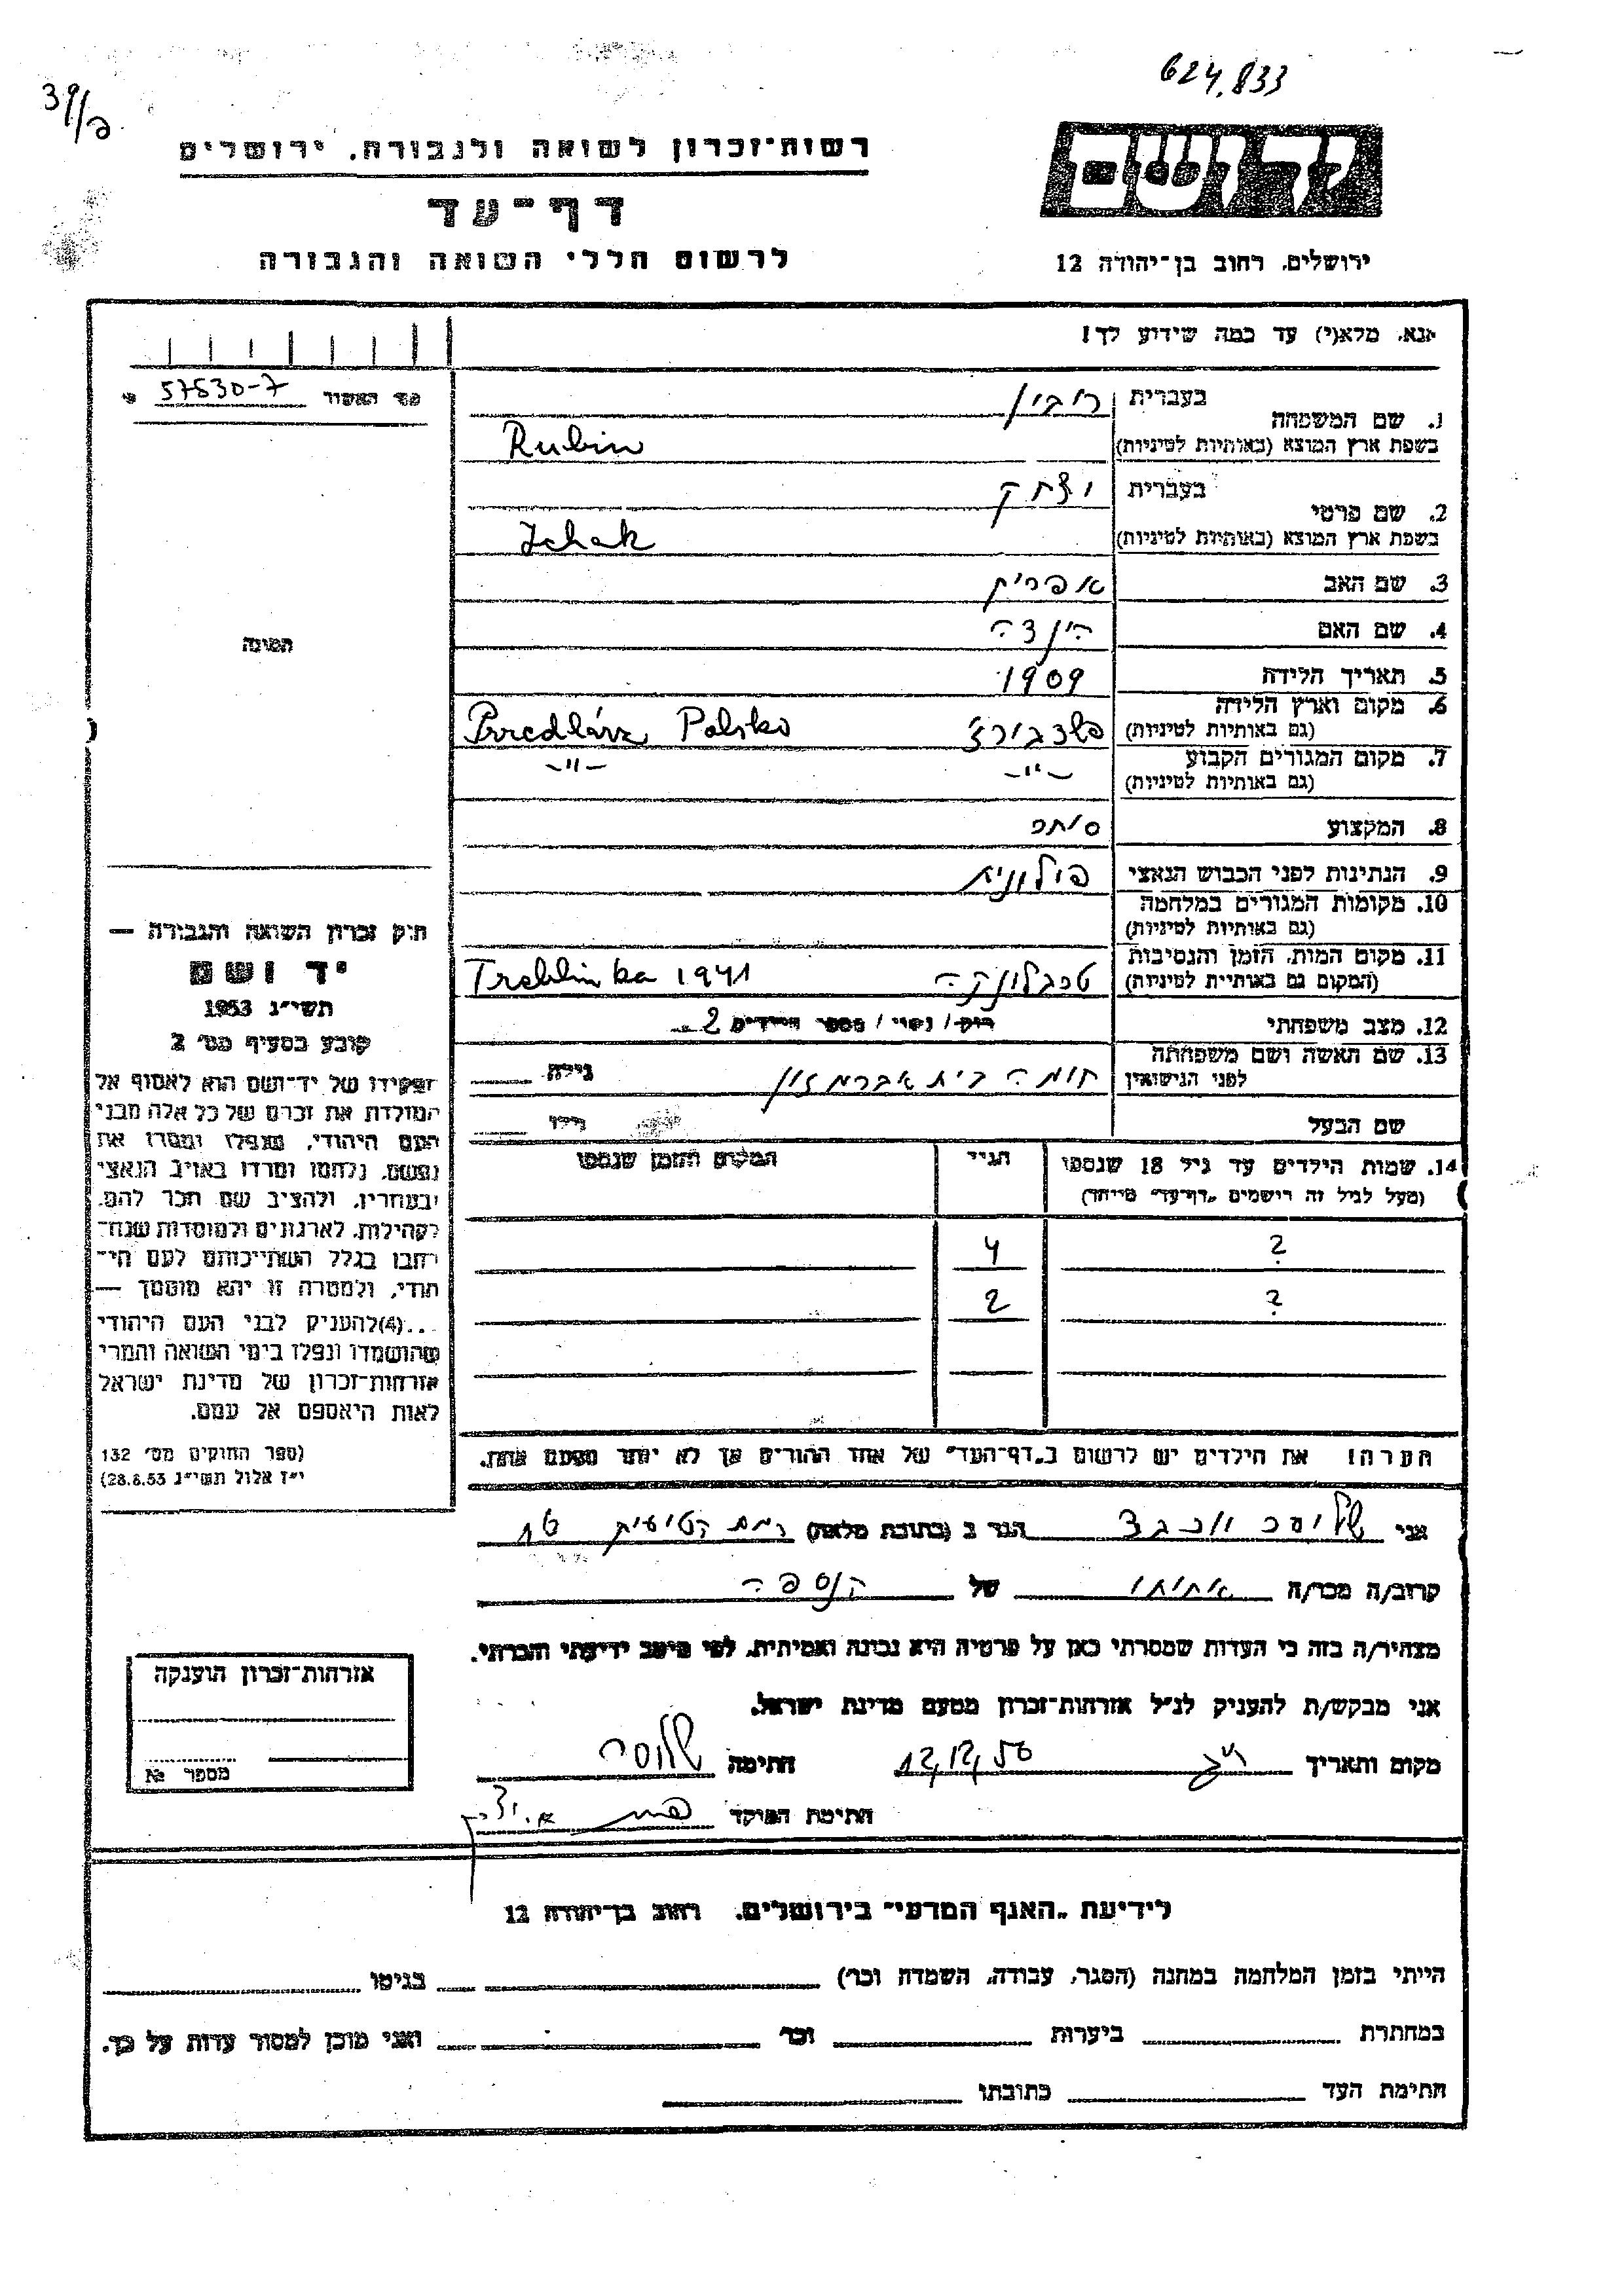 624.833
39/ב
רשות־זכרון לשואה ולגבורה. ירושלים
דף־עד
לרשום חללי השואה והגבורה
ידושם
ירושלים. רחוב בן־יהודה 12
אנא. מלא(י) עד כמה שידוע לך!
מס׳ האשור 57530-7
1. שם המשפחה
בעברית רובין
בשפת ארץ המוצא (באותיות לטיניות) Rubin
2. שם פרטי
בעברית יצחק
בשפת ארץ המוצא (באותיות לטיניות) Ichak
3. שם האב אפרים
4. שם האם הינדה
5. תאריך הלידה 1909
6. מקום וארץ הלידה
(גם באותיות לטיניות) Polsko
7. מקום המגורים הקבוע
(גם באותיות לטיניות) -"- -"-
8. המקצוע סוחר
9. הנתינות לפני הכבוש הנאצי פולונית
10. מקומות המגורים במלחמה
(גם באותיות לטיניות)
11. מקום המות. הזמן והנסיבות
(המקום גם באותיית לטיניות) טרבלינקה Treblinka 1941
12. מצב משפחתי רוק/ נשוי/ מספר הילדים 2
13. שם האשה ושם משפחתה
לפני הנישואין חומה בית אברמזון גילה
שם הבעל גילו
14. שמות הילדים עד גיל 18 שנספו הגיל המקום והזמן שנספו
(מעל לגיל זה רישמים „דף־עד״ מייחד)
? 4
? 2
הערה! את הילדים יש לרשום ב„דף־העד״ של אחד ההורים אך לא יותר מפעם אחת.
התמונה
חוק זכרון השואה והגבורה —
יד ושם
תשי״ג 1953
קובע בסעיף מס׳ 2
תפקידו של יד־ושם הוא לאסוף אל
המולדת את זכרם של כל אלה מבני
העם היהודי, שנפלו ומסרו את
נפשם. נלחמו ומרדו באויב הנאצי
ובעוזריו. ולהציב שם וזכר להם.
לקהילות. לארגונים ולמוסדות שנח־
רבו בגלל השתייכותם לעם הי־
הודי. ולמטרה זו יהא מוסמך —
...(4)להעניק לבני העם היהודי
שהושמדו ונפלו בימי השואה והמרי
אזרחות־זכרון של מדינת ישראל
לאות היאספם אל עמם.
(ספר החוקים מס׳ 132
י״ז אלול תשי״ג 28.8.53)
אני הגר ב (כתובת מלאה) רמת
קרוב/ה מכר/ה אחותו של הנספה
מצהיר/ה בזה כי העדות שמסרתי כאן על פרטיה היא נכונה ואמיתית. לפי מיטב ידיעתי והכרתי.
אני מבקש/ת להעניק לנ״ל אזרחות־זכרון מטעם מדינת ישראל.
מקום ותאריך 12/12/56 חתימה
חתימת הפוקד
אזרחות־זכרון הוענקה
מספר №
לידיעת „האנף המדעי״ בירושלים. רחוב בן־יהודה 12
הייתי בזמן המלחמה במחנה (הסגר, עבודה, השמדה וכר׳) בגיטו
במחתרת ביערות וכר׳ ואני מוכן למסור עדות על כך.
חתימת העד כתובתו